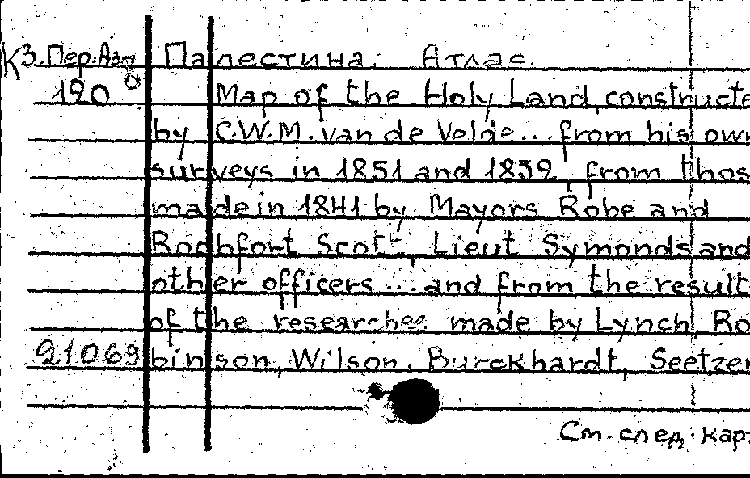 К3.Пер.Аз Палестина. Атлас.
120 Map of the Holy Land constructe
by C.W.M. van de Velde... from his own
surveys in 1851 and 1852, from thos
made in 1841 by Mayors Robe and
Rochfort Scott, Lieut Symonds and
other officers ... and from the result
of the researches made by Lynch, Ro
21069 binson, Wilson, Burckhardt, Seetzen
См. след. карт